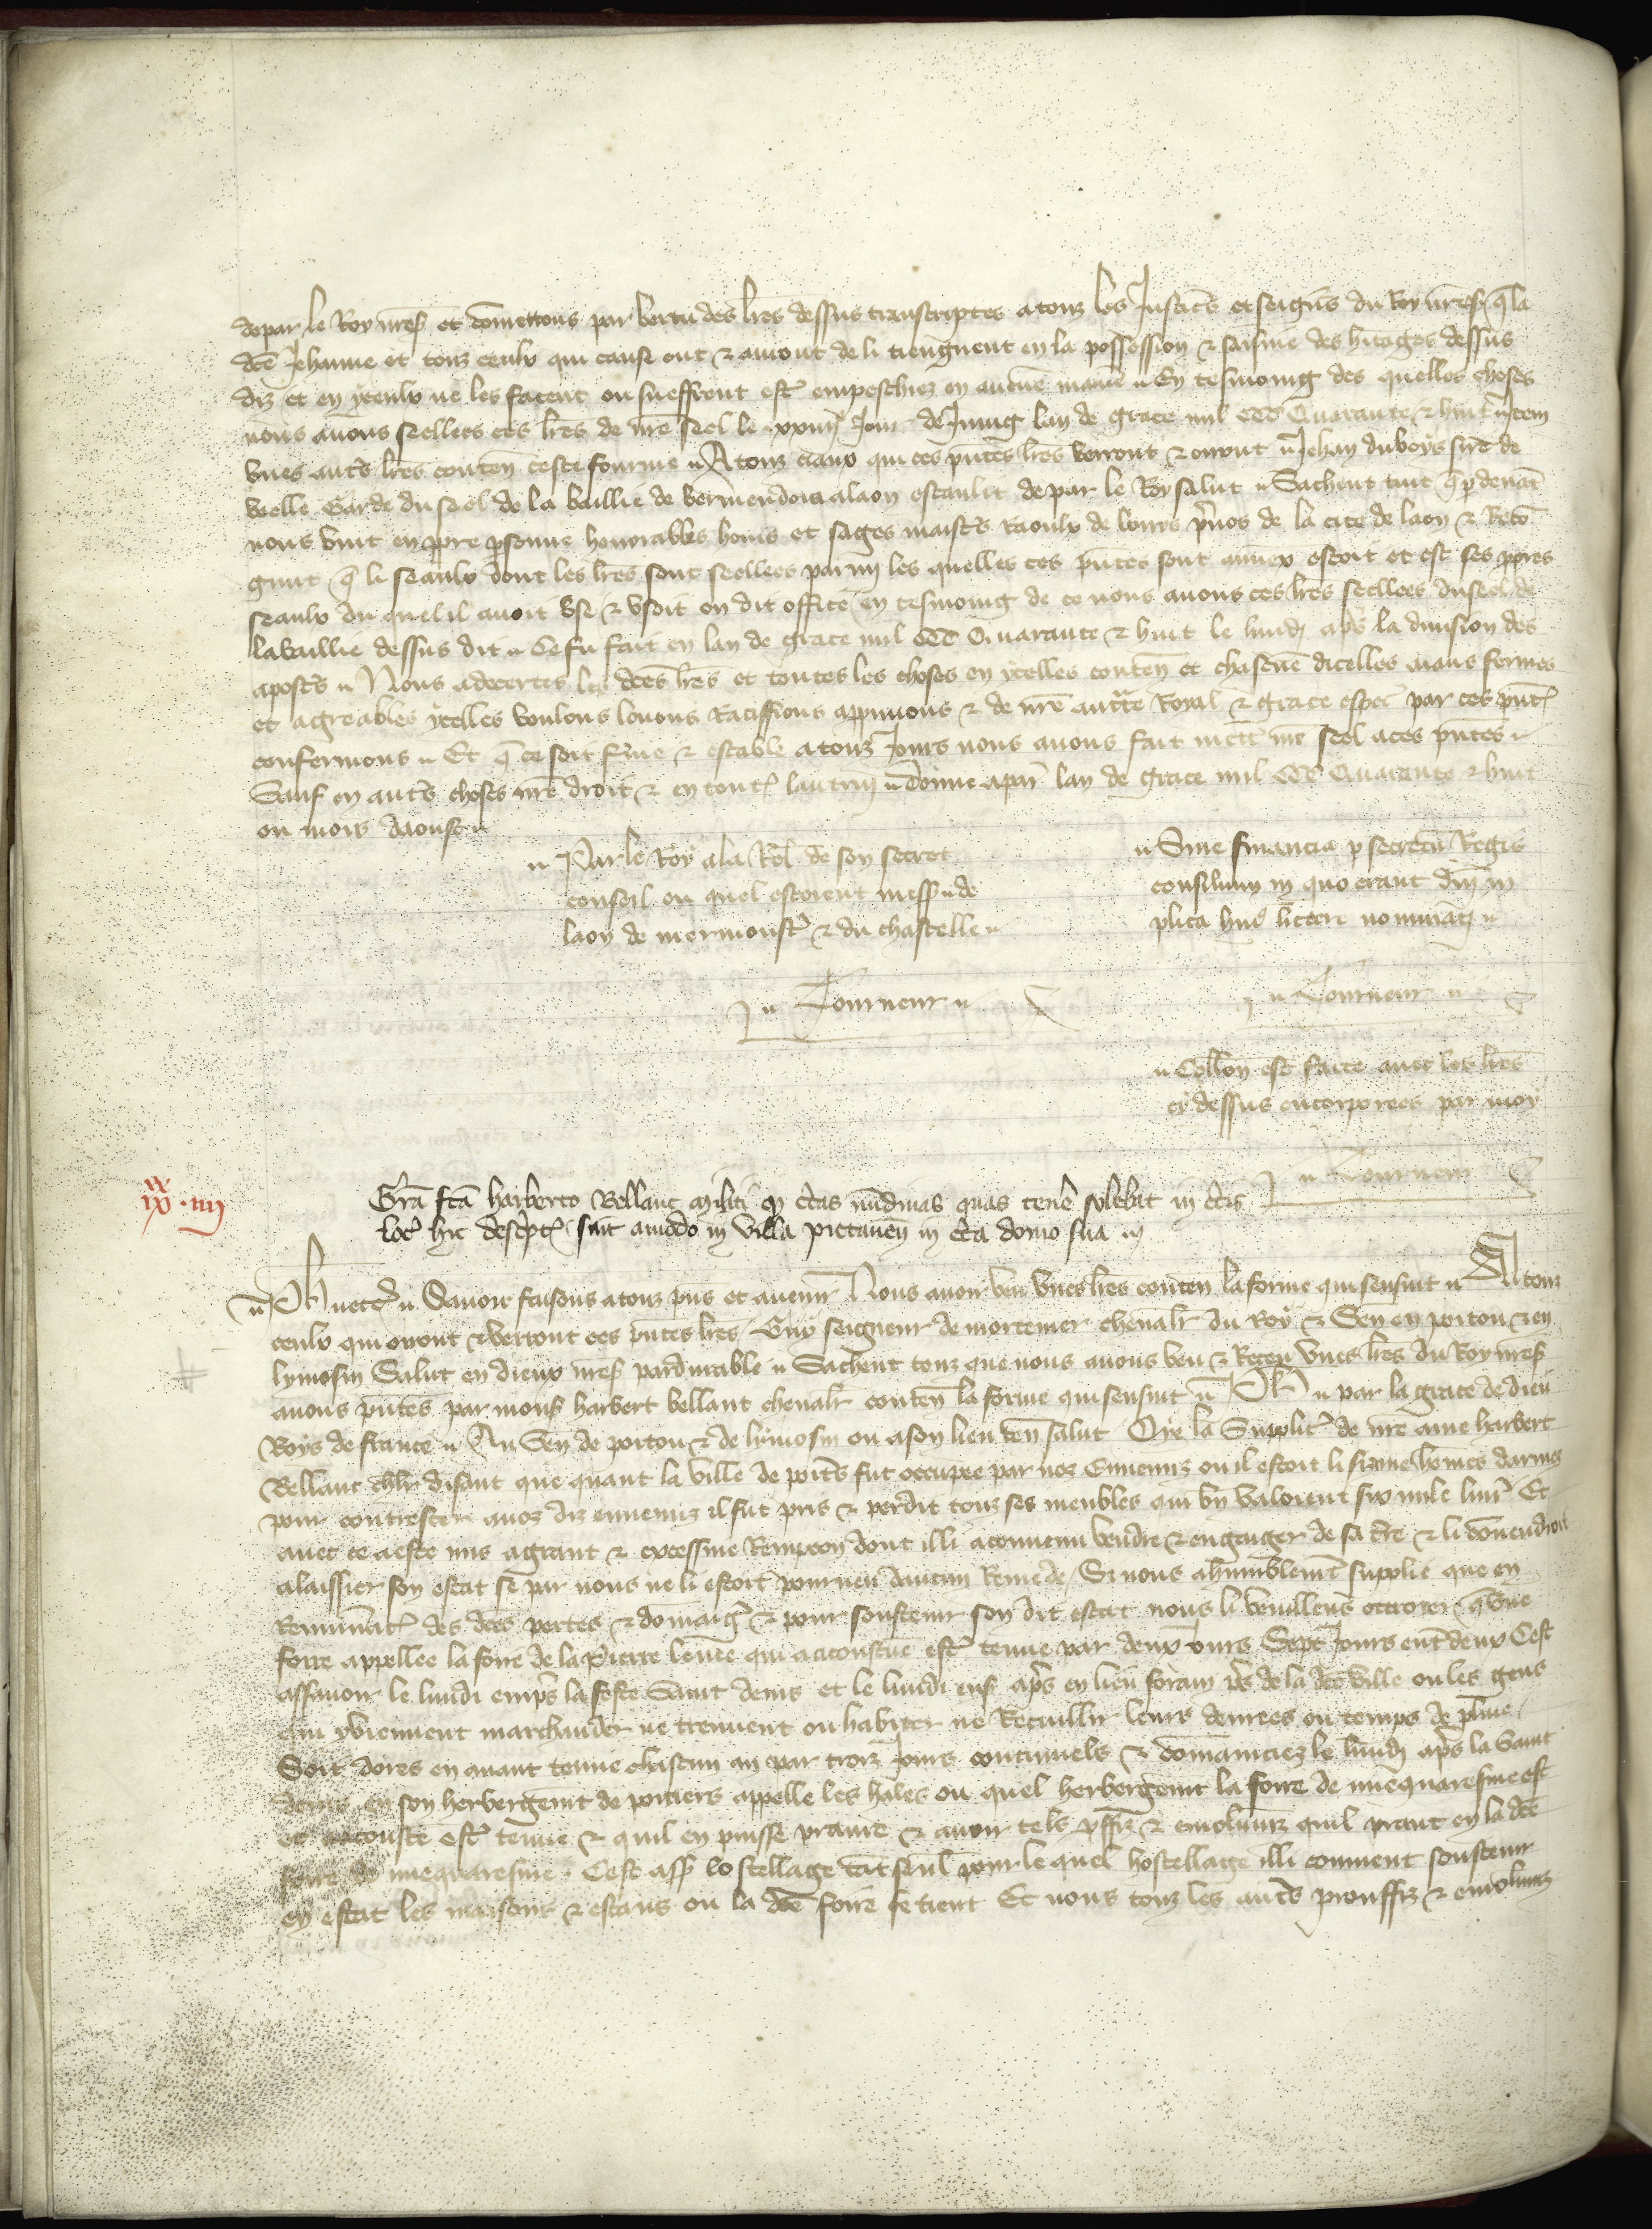 depar le Roy nr̄es. et comettons par vertu des lr̄es dessus transcriptes a touz les Justic̄s et seign̄s du Roy nr̄es. q̄ la
dc̄e Jehanne et touz ceulx qui cause ont & auront de li tiengnent en la possession & saisine des h̄itages dessus
diz et en yceulx ne les facent ou sueffrent estr̄ empeschiez en aucune maniē En tesmoing des quelles choses
nous auons seellees ces lr̄es de nr̄e seel le xxiiij Jour de Juing lan de grace mil CCC Quarante & huit Item
vnes autr̄s lr̄es conten̄ ceste fourme A touz ciaux qui ces pn̄tes lr̄es verront & orront Jehan du boys sire de
velle Garde du seel de la baillie de vermendois a laon establit de par le Roy salut Sachent tuit q̄ p̄ deuāt
nous vint en ppre psonne honorables hom̄s et sages maistr̄s Raoulx de lours p̄uos de la cite de laon & Reco
gnut q̄ li seaulx dont les lr̄es sont seellees parmi les quelles ces pn̄tes sont annex estoit et est ses ppres
seaulx du quel il auoit vse & vsoit ou dit office En tesmoing de ce nous auons ces lr̄es seellees du seel de
la baillie dessus dit Ce fu fait en lan de grace mil CCC Quarante & huit le lundi ap̄s la diuision des
apostr̄s Nous adecertes les dc̄es lr̄es et toutes les choses en ycelles conten̄ et chascune dicelles aians fermes
et agreables ycelles voulons louons Ratiffions appruuons & de nr̄e auct̄te Royal & grace espec̄ par ces pn̄t.
confermons Et q̄ ce soit ferme & estable a touz Jours nous auons fait mett̄ nr̄e seel a ces pn̄tes
Sauf en autr̄s choses nr̄e droit & en tout. lautruy donne a par̄ lan de grace mil CCC Quarante & huit
ou mois daoust
Par le Roy a la Rel̄ de son secret
conseil ou quel estoient mess. de
laon de mermoustr̄ & du chastelle
Tourneur
Sine financia p secretū Regis
consilium in quo erant dn̄i in
plica hui9 littere nominati
Tourneur
Coll̄on est faicte auec les lr̄es
cy dessus encorporees par moy
Tourneur
ix.xx iiij
Gr̄a fc̄a harberto Bellant militi q̄ c̄tas nūdinas quas tenē solebat in c̄tis
loc̄ hic descp̄t. sint amodo in villa pictauen̄ in c̄ta domo sua
Ph̄ etc̄ Sauoir faisons a touz pn̄s et auenir Nous auoir veu vnes lr̄es conten̄ la forme qui sensuit A touz
ceulx qui orront & verront ces pn̄tes lr̄es Guy seigneur de mortemer cheualr̄ du Roy & Sen̄ en poitou & en
lymosin Salut en dieux nr̄es. pardurable Sachent touz que nous auons veu & Receu vnes lr̄es du Roy nr̄es.
a nous pn̄tes par mons. harbert bellant cheualr̄ conten̄ la forme qui sensuit Ph̄ par la grace de dieu
Roys de france Au Sen̄ de poitou & de lymosin ou a son lieu ten̄ salut Oye la Supplic̄ de nr̄e ame harbert
Bellant ch̄lr̄ disant que quant la ville de poit̄s fut occupee par noz Ennemiz ou il estoit li sixime hōmes darmes
pour contrester a noz diz ennemiz il fut pris & perdit touz ses meubles qui bn̄ valoient six mile liur̄ Et
auec ce a este mis a grant & excessiue Reempcon dont illi a conuenu vendre & engaiger de sa t̄re & li conuendroit
a laissier son estat se par nous ne li estoit pourueu daucun Remede Si nous a humblemt̄ supplie que en
Remun̄at. des dc̄es pertes & domaiḡ & pour soustenir son dit estat nous li vueilliens ottroier q̄ vne
foire appellee la foire de la pierre leuee qui a acoustūe estr̄ tenue par deux Jours Sept Jours ent̄ deux Cest
assauoir le lundi emp̄s la feste Saint denis et le lundi ens. ap̄s en lieu forain p̄s de la dc̄e ville ou les gens
qui y viennent marchander ne treuuent ou habiter ne Recuillir leurs denrees ou temps de pluie
Soit dores en auant tenue chascun an par troiz Jours continuels & cōmanciez le lundi ap̄s la Saint
denis en son herbergemt̄ de poitiers appelle les hales ou quel herbergemt̄ la foire de miequaresme est
et acoustūe estr̄ tenue & quil en puisse prandre & auoir tels p̄ffiz & emolumz̄ quil prant en la dc̄e
foire de miequaresme Cest ass. lostellage tāt seul pour le quel hostellage illi conuient soustenir
en estat les maisons & estaus ou la dc̄e foire se tient Et nous touz les autr̄s prouffiz & emolumz̄